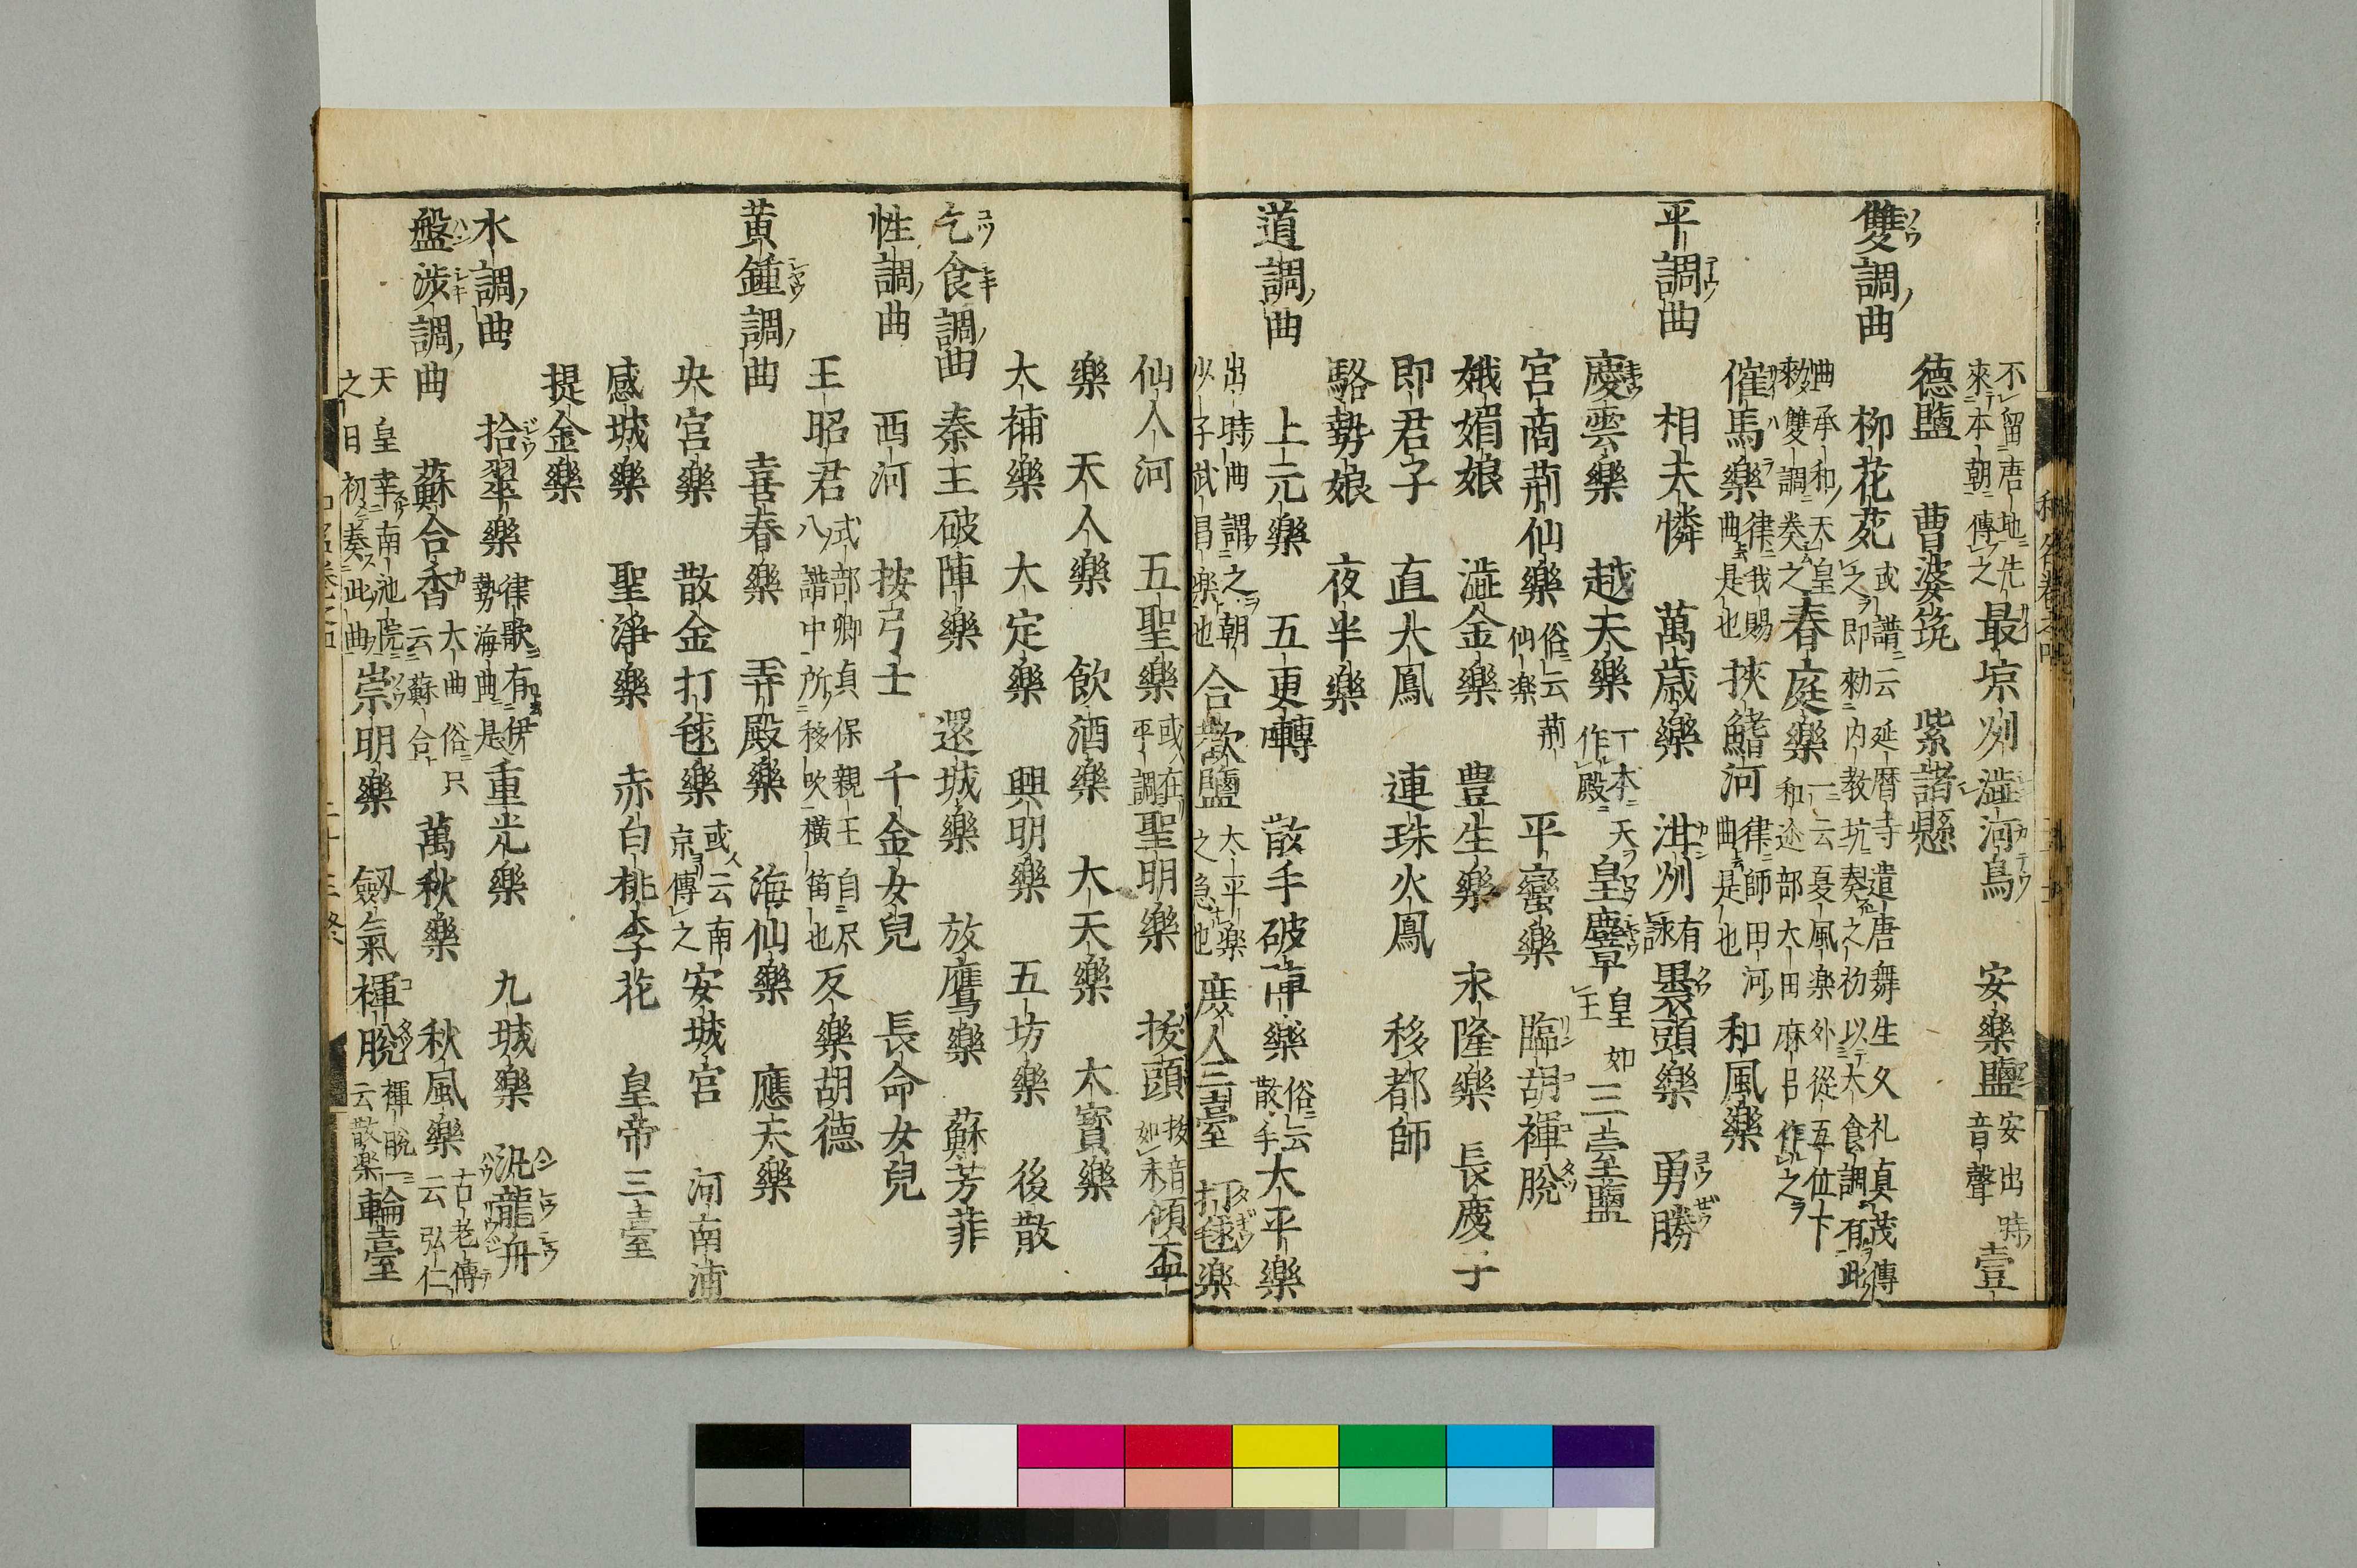 不留唐地先
來本朝傳之
最凉州 澁河鳥 安樂鹽
安出時
音聲
壹
德鹽 曹婆筑 紫諸懸
雙調曲
柳花苑
或譜云延暦寺遣唐舞生久礼真茂傳
之即勑内教坊奏之初以大食調有此
曲承和天皇
勑雙調奏之
春庭樂
一云夏風楽外從五位下
和迩部大田麻呂作之
催馬樂
律我賜
曲是也
挾鰭河
律師田河
曲是也
和風樂
平調曲
相夫憐 萬歳樂 泔州
有
詠
褁頭樂 勇勝
慶雲樂 越天樂
一本
作殿
天皇麞
皇如
王
三臺鹽
宮商荊仙樂
俗云荊
仙楽
平蠻樂 臨胡褌脫
娥媚娘 澁金樂 豊生樂 永隆樂 長慶子
即君子 直火鳳 連珠火鳳 移都師
駱勢娘 夜半樂
道調曲
上元樂 五更囀 散手破陣樂
俗云
散手
太平樂
出時曲謂之朝
少子武昌楽也
合歓鹽
太平楽
之急也
庶人三臺 打毬楽
仙人河 五聖樂
或在
平調
聖明樂 拔頭
拔音
如末
傾盃
樂 天人樂 飲酒樂 大天樂 大寳樂
太補樂 大定樂 興明樂 五坊樂 後散
乞食調曲
秦王破陣樂 還城樂 放鷹樂 蘇芳菲
性調曲
西河 按弓士 千金女兒 長命女兒
王昭君
式部卿貞保親王自尺
八譜中所移吹横笛也
反樂胡德
黄鍾調曲
喜春樂 弄殿樂 海仙樂 應天樂
央宮樂 散金打毬樂
或云南
京傳之
安城宮 河南浦
感城樂 聖淨樂 赤白桃李花 皇帝三臺
提金樂
水調曲
拾翠樂
律歌有伊
勢海曲是
重光樂 九城樂 汎龍舟
盤渉調曲
蘇合香
大曲俗只
云蘇合
萬秋樂 秋風樂
古老傳
云弘仁
天皇幸南池院
之日初奏此曲
崇明樂 劔氣褌脫
褌脫一
云散楽
輪臺